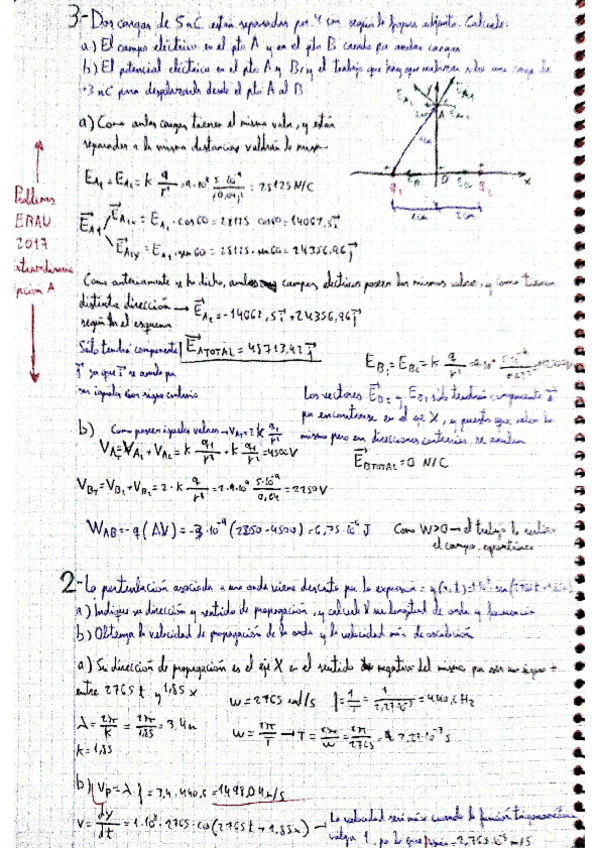 3- Dos cargas de 5 nC están separadas por 4 cm según la figura adjunta. Calcule:
a) El campo eléctrico en el pto A y en el pto B creado por ambas cargas
b) El potencial eléctrico en el pto A y B, y el trabajo que hay que realizar sobre una carga de
+3 nC para desplazarla desde el pto A al B
a) Como ambas cargas tienen el mismo valor, y están
separadas a la misma distancia valdrán lo mismo
Problemas
EBAU
2017
extraordinaria
opción A
E_A1 = E_A2 = K q/r² = 9·10⁹ 5·10⁻⁹/(0,04)² = 28125 N/C
E_A1x = E_A1 · cos60 = 28125 cos60 = 14062,5 i
E_A1
E_A1y = E_A1 · sen60 = 28125 · sen60 = 24356,96 j
Como anteriormente se ha dicho, ambos campos eléctricos poseen los mismos valores, y como tienen
distinta dirección → E_A2 = -14062,5 i + 24356,96 j
según el esquema
Sólo tendrá componente
E_ATOTAL = 48713,92 j
j ya que i se anula por
ser iguales con signo contrario
E_B1 = E_B2 = K q/r²
Los vectores E_B2 y E_B1 sólo tendrán componente i
por encontrarse en el eje X, y puesto que valen lo
mismo pero en direcciones contrarias, se anulan
E_BTOTAL = 0 N/C
b) Como poseen iguales valores → V_AT = 2 K q/r
V_AT = V_A1 + V_A2 =
V_BT = V_B1 + V_B2 = 2 ·
W_AB = -q (ΔV) = -3·10⁻⁹ (2250 - 4500) = 6,75·10⁻⁶ J
Como W>0 → el trabajo lo realiza
el campo, espontáneo
2- La perturbación asociada a una onda viene descrita por la expresión
a) Indique su dirección y sentido de propagación, y calcule su longitud de onda y frecuencia
b) Obtenga la velocidad de propagación de la onda y la velocidad máx de oscilación
a) Su dirección de propagación es el eje X en el sentido negativo del mismo por ser un signo +
entre 2765 t y 1,85 x
w = 2765 rad/s f = 1/T =
λ = 2π/K = 2π/1,85 = 3,4 m
w = 2π/T → T = 2π/w = 2π/2765 =
K = 1,85
b) Vp = λ · f = 3,4 · 440,6 = 1498,04 m/s
V = dy/dt = 1·10⁻³ · 2765 · cos (2765t + 1,85x) → La velocidad será máx cuando la función trigonométrica
valga 1, por lo que